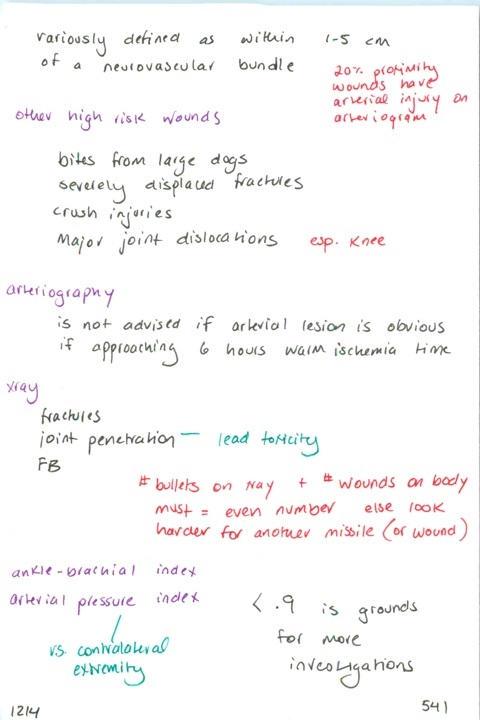 variously defined as within 1-5 cm
of a neurovascular bundle
20% proximity
wounds have
arterial injury on
arteriogram
other high risk wounds
bites from large dogs
severely displaced fractures
crush injuries
Major joint dislocations esp. Knee
arteriography
is not advised if arterial lesion is obvious
if approaching 6 hours warm ischemia time
xray
fractures
joint penetration – lead toxicity
FB
# bullets on xray + # wounds on body
must = even number else look
harder for another missile (or wound)
ankle-brachial index
arterial pressure index
vs. contralateral
extremity
< .9 is grounds
for more
investigations
1214
541